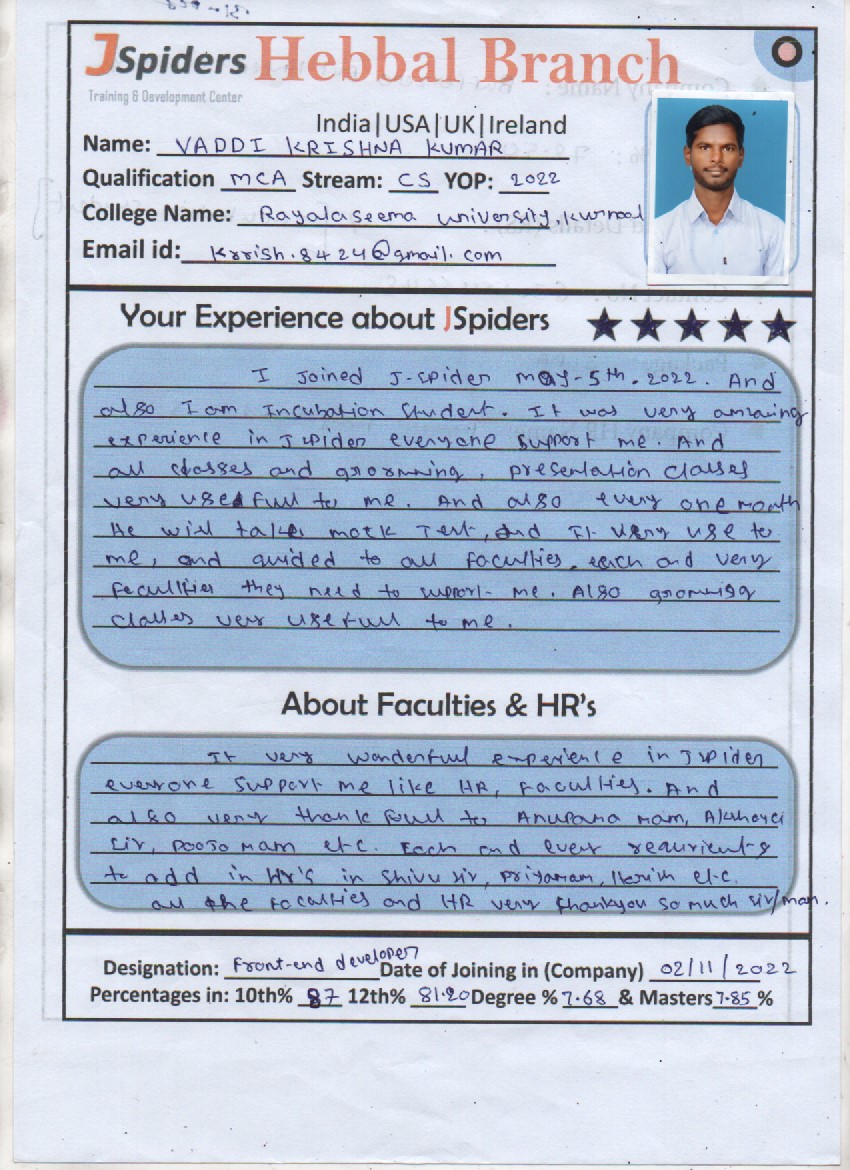 JSpiders Hebbal Branch
Training & Development Center
India|USA|UK|Ireland
Name: VADDI KRISHNA KUMAR
Qualification MCA Stream: CS YOP: 2022
College Name: Rayalaseema university, Kurnool
Email id: Krrish.8424@gmail.com
Your Experience about JSpiders
I Joined J-spider may-5th.2022. And
also I am Incubation Student. It was very amazing
experience in Jspider everyone support me. And
all classes and groomning, presentation classes
very usedfull to me. And also every one month
He will takes mock Test, and It very use to
me, and guided to all faculties, each and very
faculties they need to support me. Also groomisg
classes very usefull to me.
About Faculties & HR's
It very wonderfull experience in Jspider
everyone support me like HR, Faculties. And
also very thankfull to Anupana mam,
sir, pooja mam etc. Each and every
to add in Hr's in Shivu sir, priyamam, etc.
all the Faculties and HR very thankyou so much sir/mam.
Designation: Front-end developer Date of Joining in (Company) 02/11/2022
Percentages in: 10th% 87 12th% 81.20 Degree % 7.68 & Masters 7.85 %